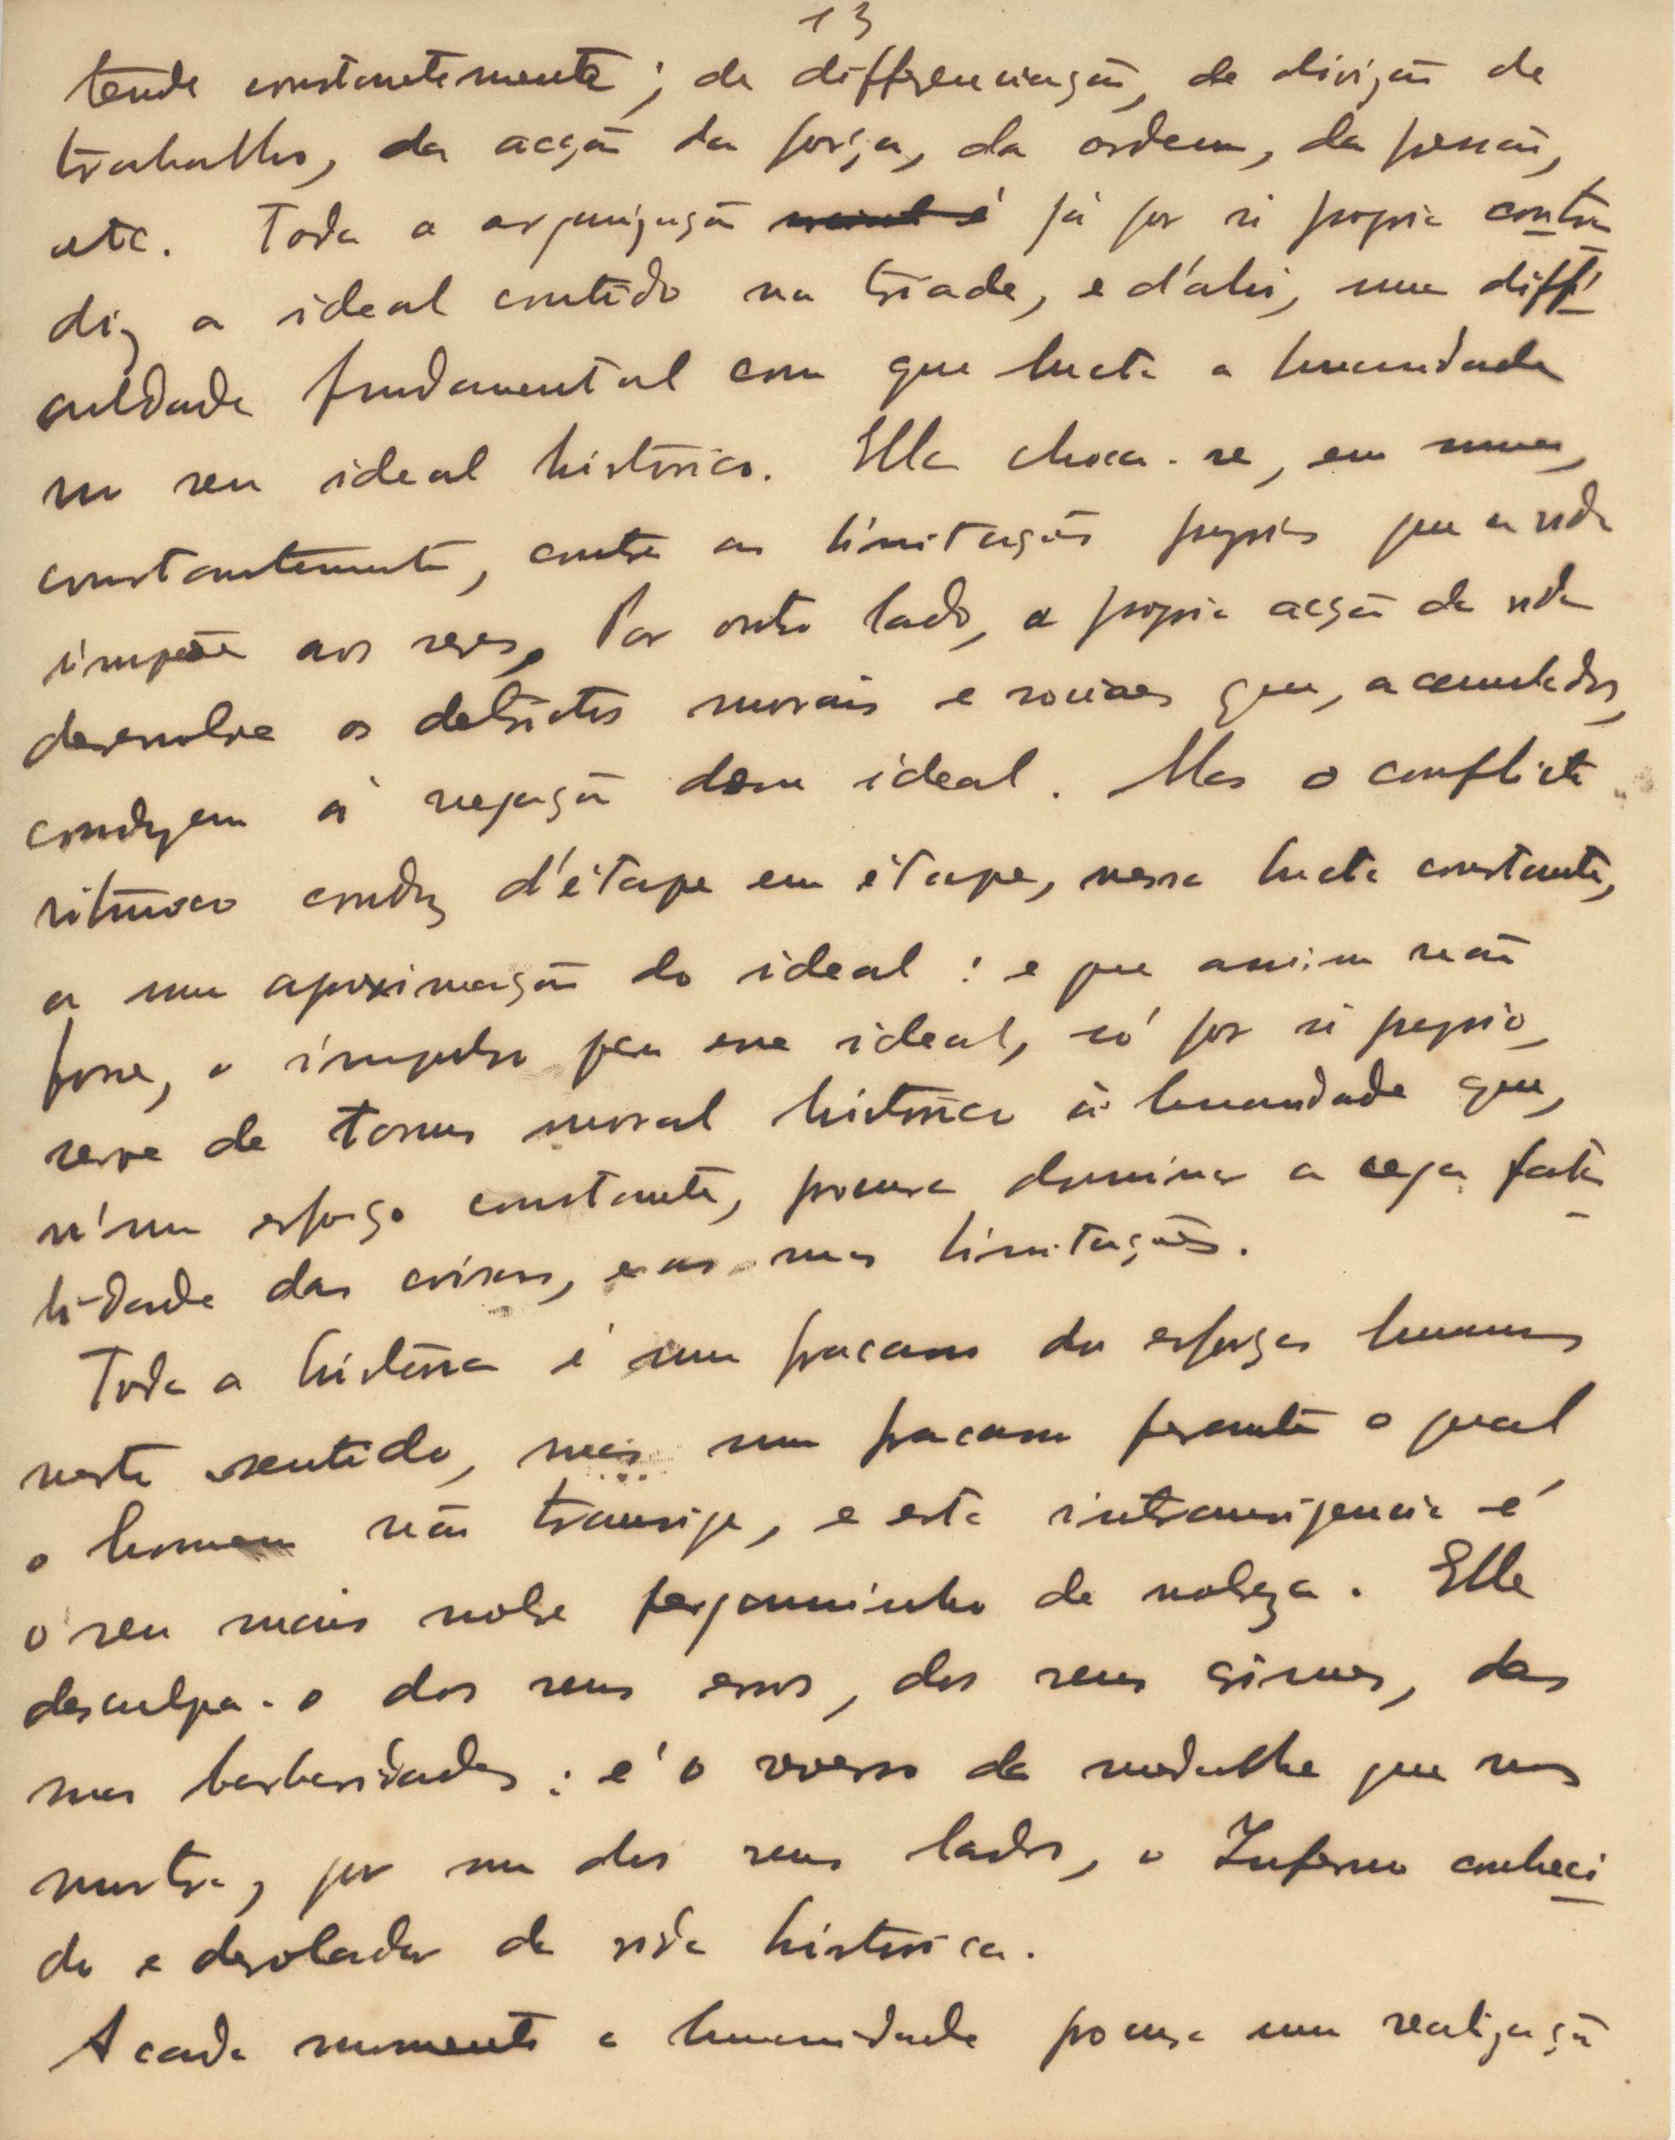 13
tende constantemente; de differenciação, de divisão de
trabalho, da acção da força, da ordem, da pressão,
etc. Toda a organização social é já por si propria contra
diz o ideal contido na triade, e d'ahi, uma diffi
culdade fundamental com que lucta a humanidade
no seu ideal historico. Ella choca-se, em summa,
constantemente, contra as limitações proprias que a vida
impõe aos seres. Por outro lado, a propria acção da vida
desenvolve os detrictos moraes e sociaes que, accumulados,
conduzem á negação dum ideal. Mas o conflicto
ritmico conduz d'étape em étape, nessa lucta constante,
a uma aproximação do ideal: e que assim não
fosse, o impulso para esse ideal, só por si proprio,
serve de tonus moral historico á humanidade que,
n'um esforço constante, procura dominar a cega fata
lidade das coisas, e as suas limitações.
Toda a historia é um fracasso dos esforços humanos
neste sentido, mas um fracasso perante o qual
o homem não transige, e esta intransigencia é
o seu mais nobre pergaminho de nobreza. Ella
desculpa-o dos seus erros, dos seus crimes, das
suas barbaridades: é o reverso da medalha que nos
mostra, por um dos seus lados, o Inferno conheci
do e desolador da vida historica.
A cada momento a humanidade procura uma realização